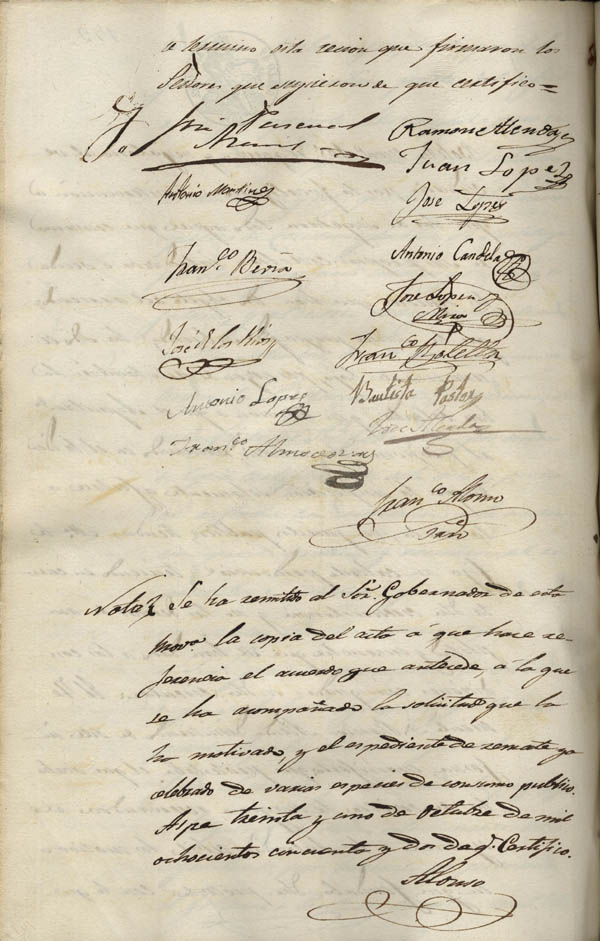 se termino esta sesion que firmaron los
Señores que supieron de que certifico =
Antonio Martinez
Ramon Alenda
Juan Lopez
Jose Lopez
Franco. Beria
Antonio Candela
Jose Lopez
Mira
José de los Rios
Franco. Botella
Antonio Lopez
Bautista Pastor
Jose Alenda
Franco. Almodovar
Franco. Alonso
Nota Se ha remitido al Sor. Gobernador de esta
Prova. la copia del acta á que hace re-
ferencia el acuerdo que antecede, á la que
se ha acompañado la solicitud que la
ha motivado y el espediente de remate ya
celebrado de varias especies de consumo publico.
Aspe treinta y uno de Octubre de mil
ochocientos cincuenta y dos de q. Certifico.
Alonso